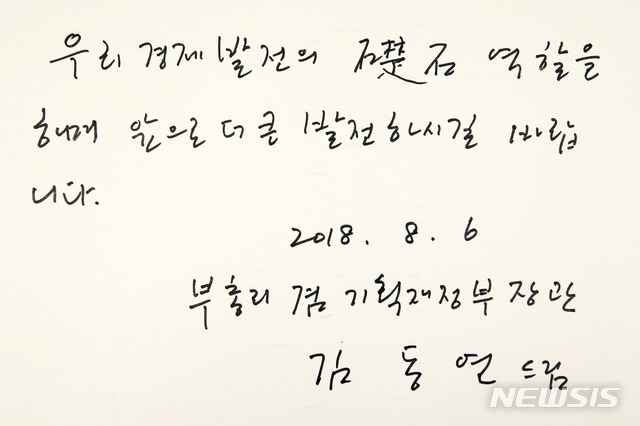 우리 경제발전의 礎石 역할을
하며 앞으로 더 큰 발전하시길 바랍
니다.
2018. 8. 6
부총리 겸 기획재정부장관
김 동 연 드림
NEWSIS